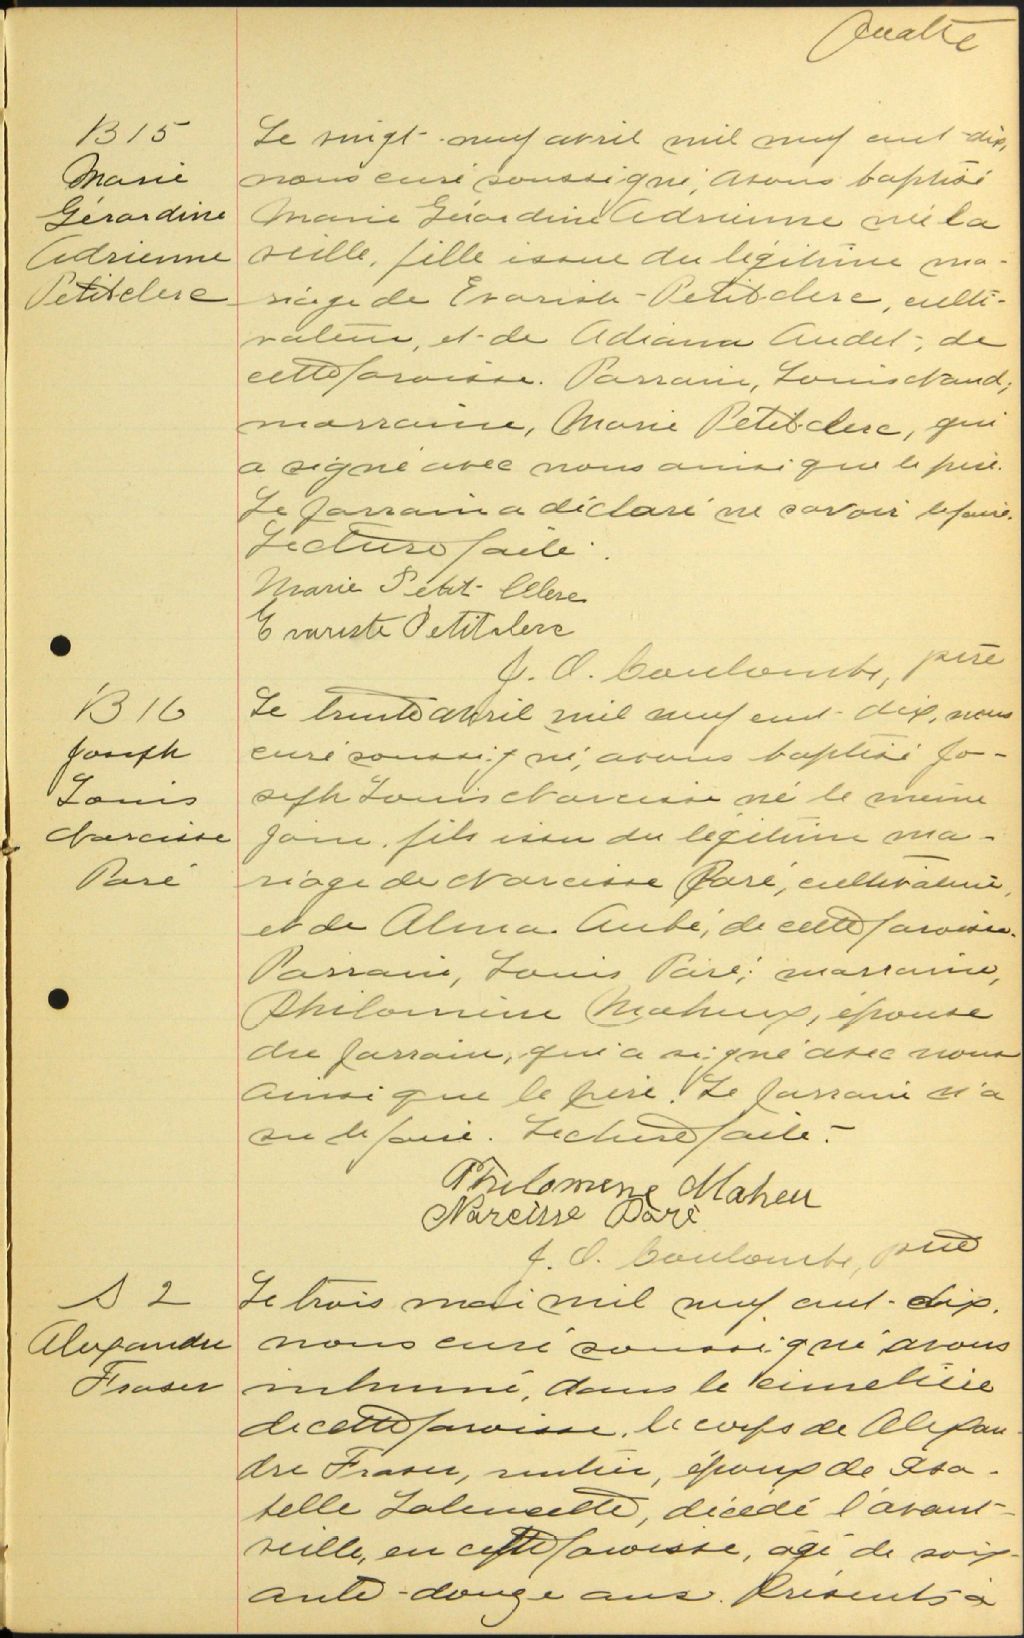 quatre
B 15
Marie
Gérardine
Adrienne
Petitclerc
Le vingt-neuf avril mil neuf cent-dix,
nous curé soussigné, avons baptisé
Marie Gérardine Adrienne née la
veille, fille issue du légitime ma-
riage de Evariste Petitclerc, culti-
vateur, et de Adiana Audet, de
cette paroisse. Parrain, Louis Naud;
marraine, Marie Petitclerc, qui
a signé avec nous ainsi que le père.
Le parrain a déclaré ne savoir le faire.
Lecture faite.
Marie Petit-Clerc
Evariste Petitclerc
J. O. Coulombe, ptre
B 16
Joseph
Louis
Narcisse
Paré
Le trente avril mil neuf cent-dix, nous
curé soussigné, avons baptisé Jo-
seph Louis Narcisse né le même
jour, fils issu du légitime ma-
riage de Narcisse Paré, cultivateur,
et de Alma Aubé, de cette paroisse.
Parrain, Louis Paré; marraine,
Philomène Maheux, épouse
du parrain, qui a signé avec nous
ainsi que le père. Le parrain n'a
su le faire. Lecture faite.
Philomene Maheu
Narcisse Paré
J. O. Coulombe, ptre
S 2
Alexandre
Fraser
Le trois mai mil neuf cent-dix,
nous curé soussigné avons
inhumé, dans le cimetière
de cette paroisse, le corps de Alexan-
dre Fraser, rentier, époux de Isa-
belle, décédé l'avant-
veille, en cette paroisse, âgé de soix-
ante-douze ans. Présents à